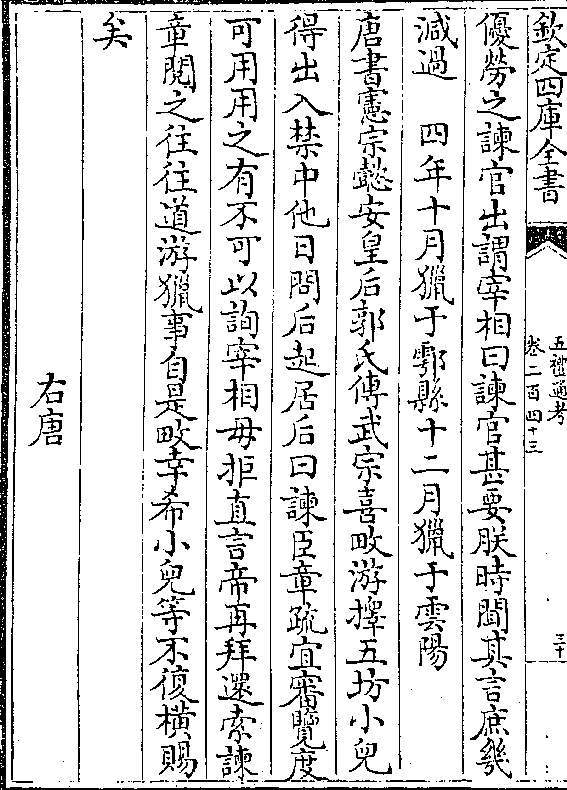 欽定四庫全書
五禮通考
卷二百四十三
三十
優勞之諫官出謂宰相曰諫官甚要朕時聞其言庶幾
減過　四年十月獵于鄠縣十二月獵于雲陽
唐書憲宗懿安皇后郭氏傳武宗喜畋游擇五坊小兒
得出入禁中他日問后起居后曰諫臣章疏宜審覽度
可用用之有不可以詢宰相毋拒直言帝再拜還索諫
章閱之往往道游獵事自是畋幸希小兒等不復橫賜
矣
右唐